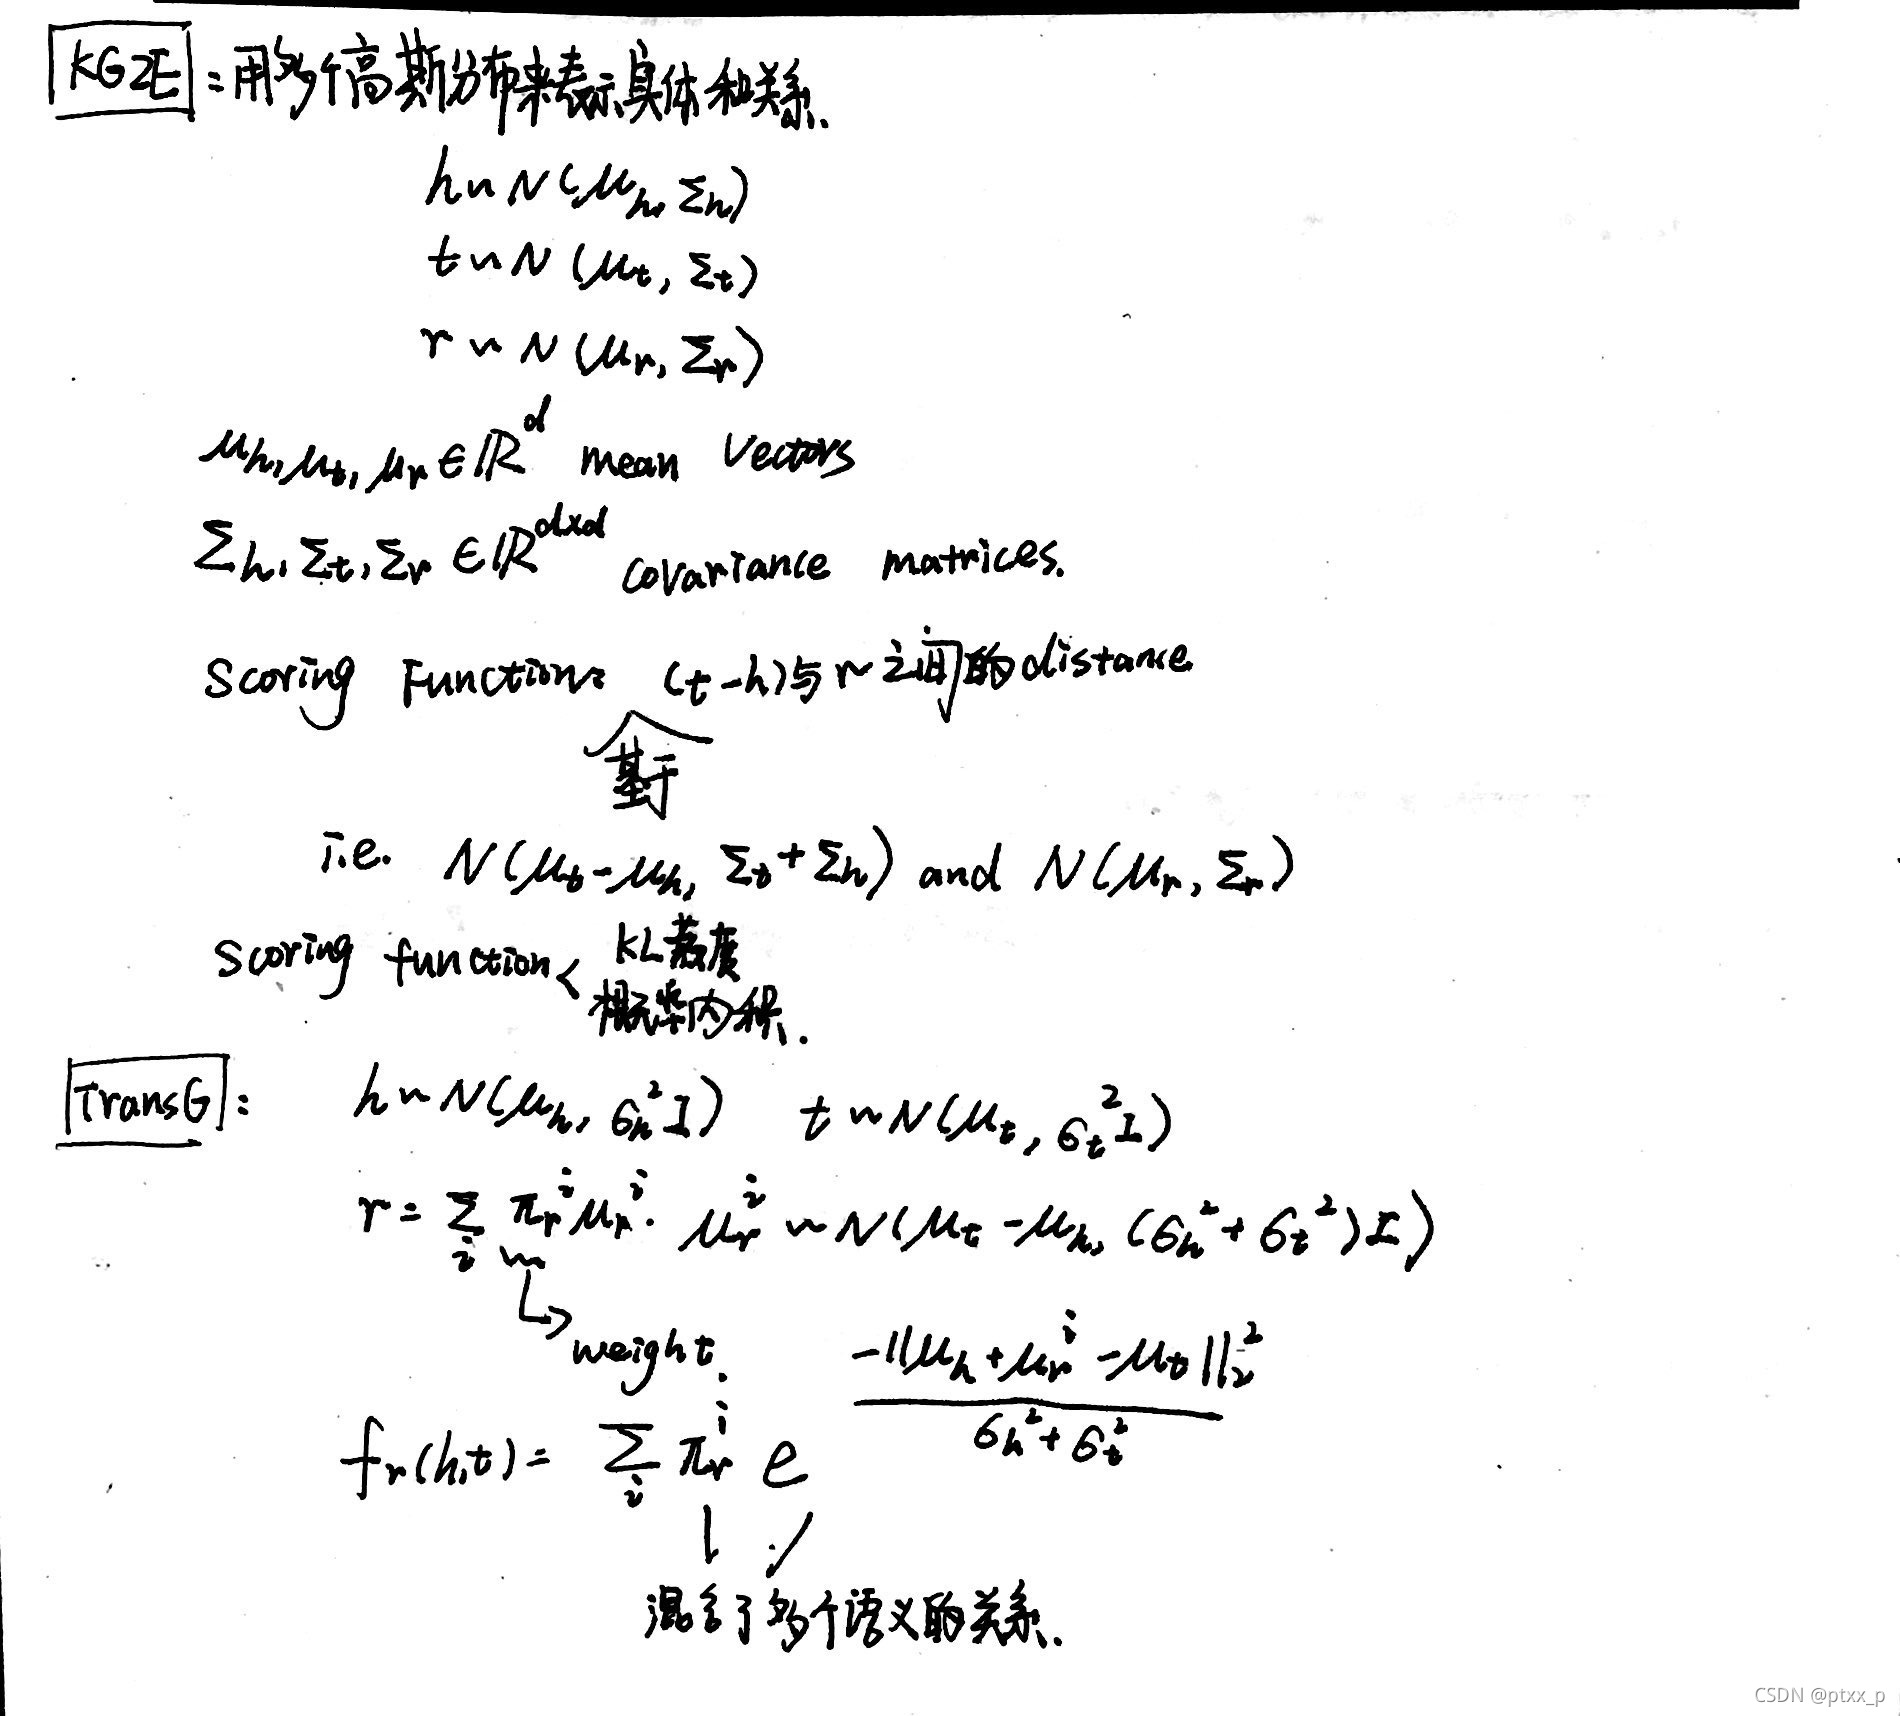 KG2E：用多个高斯分布来表示具体和关系.
h ~ N(μ_h, Σ_h)
t ~ N(μ_t, Σ_t)
r ~ N(μ_r, Σ_r)
μ_h, μ_t, μ_r ∈ ℝ^d mean vectors
Σ_h, Σ_t, Σ_r ∈ ℝ^{d×d} covariance matrices.
Scoring Function: (t-h)与r之间的distance
基于
i.e. N(μ_t-μ_h, Σ_t+Σ_h) and N(μ_r, Σ_r)
Scoring function < KL散度
概率内积.
TransG: h ~ N(μ_h, σ_h^2 I) t ~ N(μ_t, σ_t^2 I)
r = Σ_i π_r^i μ_r^i. μ_r^i ~ N(μ_t - μ_h, (σ_h^2 + σ_t^2)I)
↳ weight.
f_r(h,t) = Σ_i π_r^i e^{-||μ_h + μ_r^i - μ_t||_2^2 / (σ_h^2 + σ_t^2)}
混合了多个语义的关系.
CSDN @ptxx_p